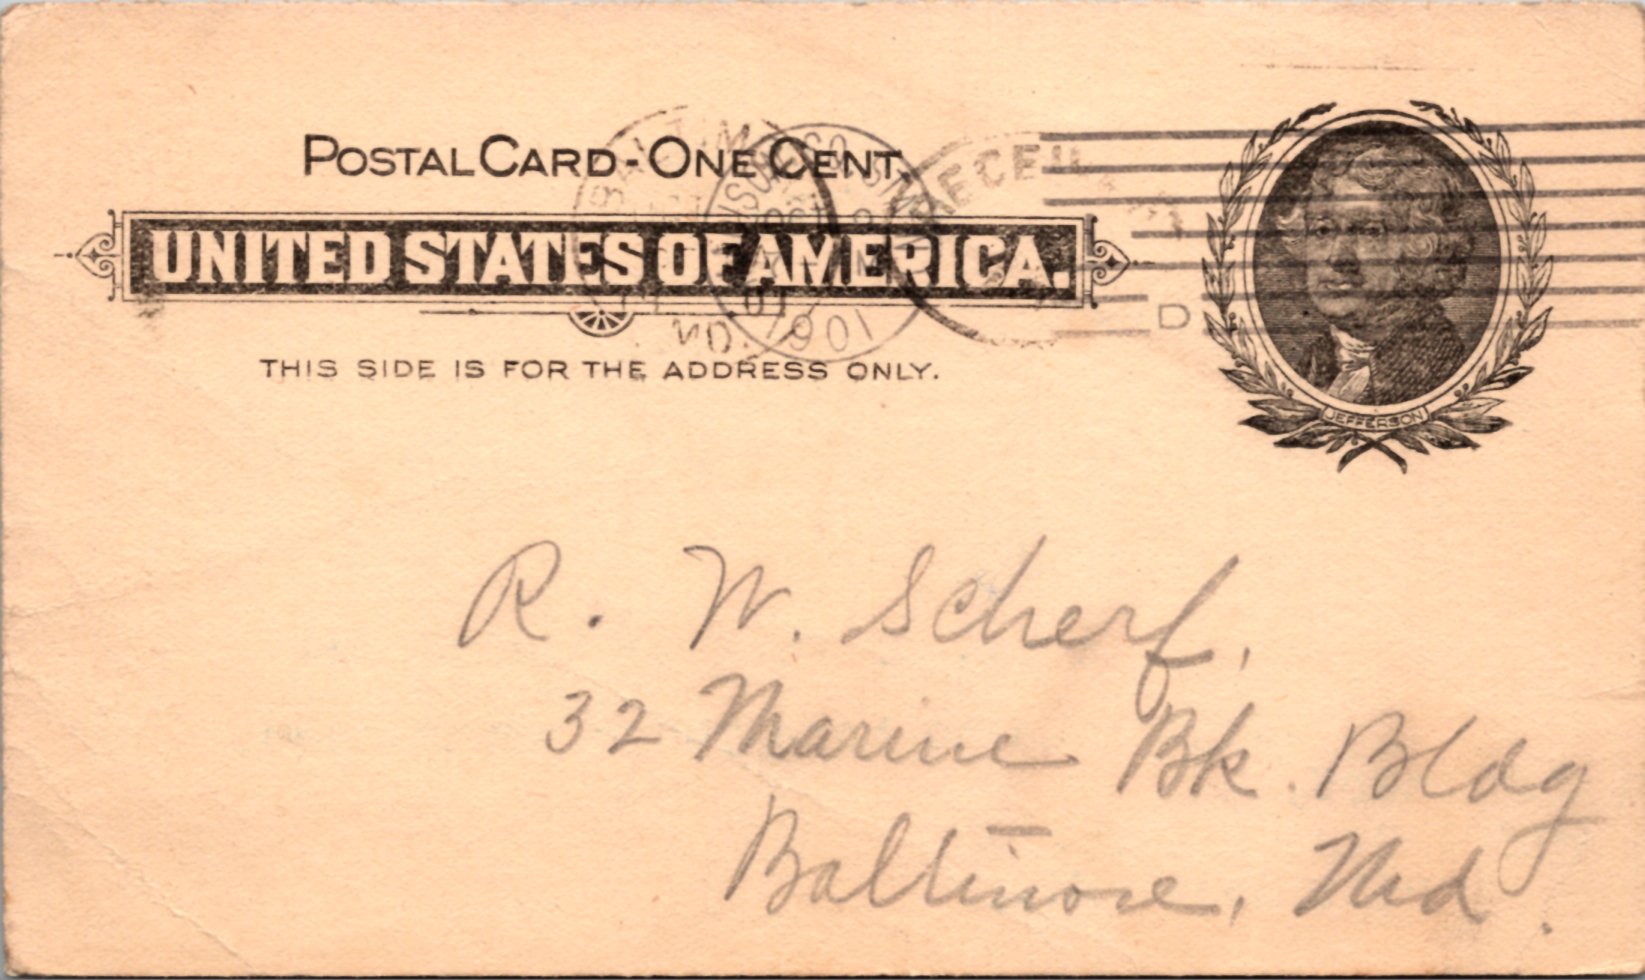 POSTAL CARD - ONE CENT.
UNITED STATES OF AMERICA.
THIS SIDE IS FOR THE ADDRESS ONLY.
MD. 1901
D
JEFFERSON
R. W. Scherf,
32 Marine Bk. Bldg
Baltimore, Md.